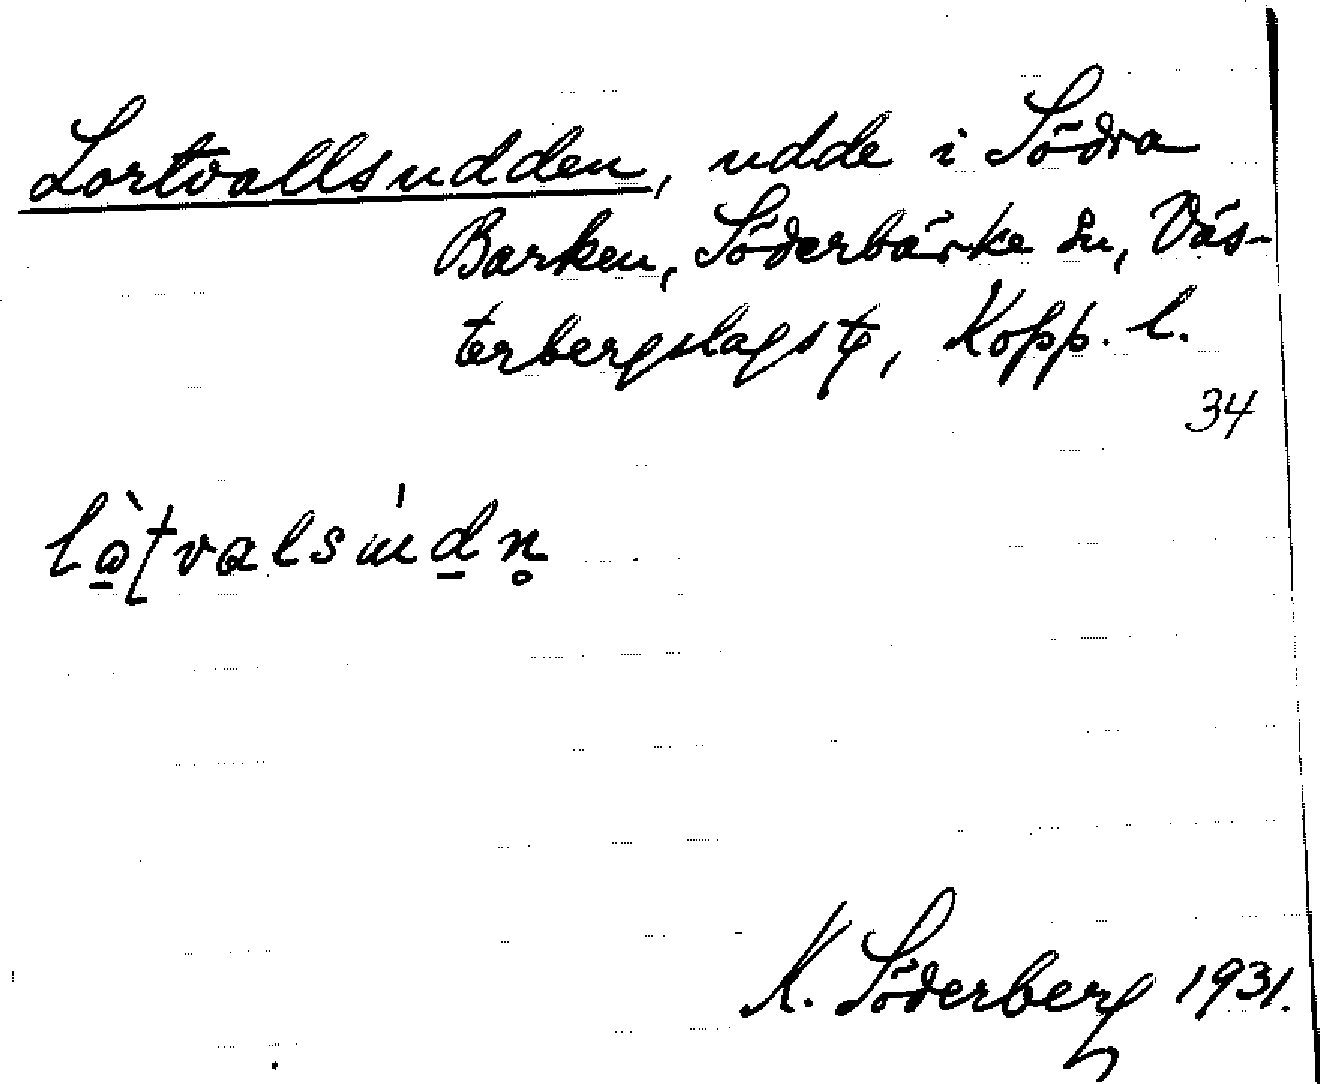 Lortvallsudden, udde i Södra
Barken, Söderbärke sn, Väs-
terbergslags , Kopp. l.
34
K. Söderberg 1931.